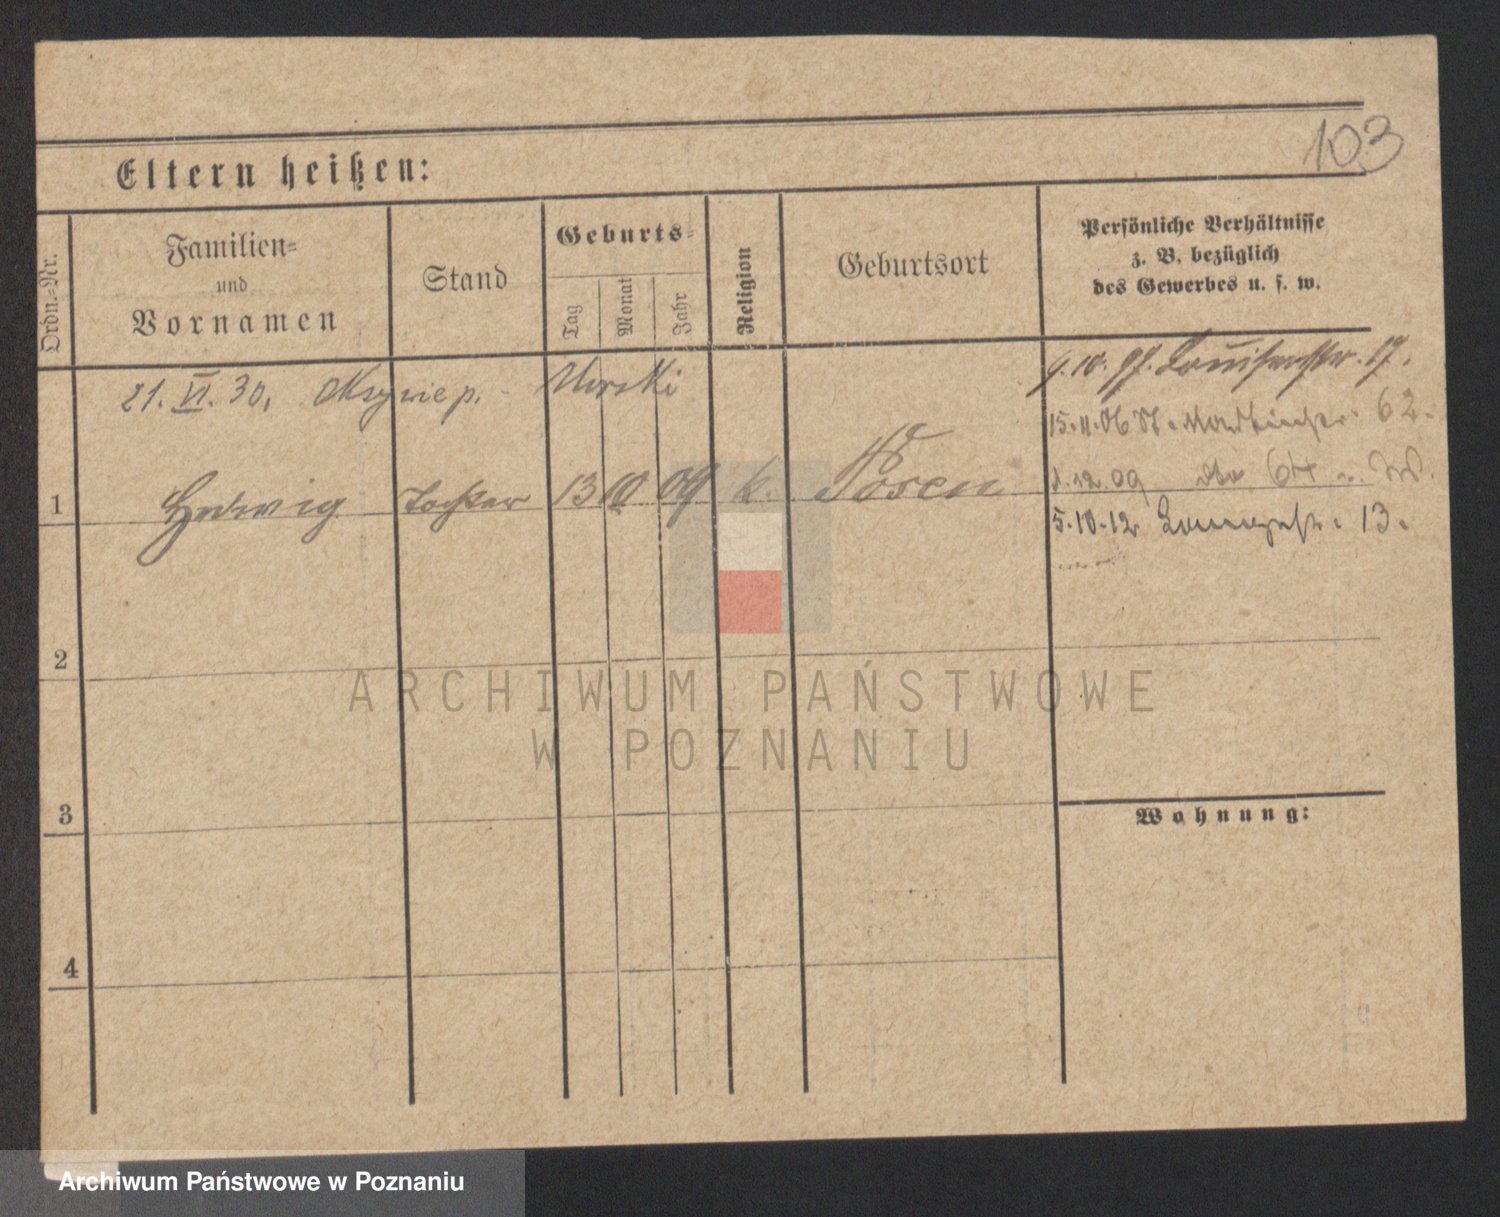 103
Eltern heißen:
Ordn.-Nr.
Familien-
und
Vornamen
Stand
Geburts-
Tag
Monat
Jahr
Religion
Geburtsort
Persönliche Verhältnisse
z. B. bezüglich
des Gewerbes u. s. w.
21. VI. 30,
9.10. 97. Louisenstr. 17.
15.11.06 St. Martinstr. 62.
1 Hedwig Tochter 13 10 09 k. Posen
1.12.09 do 64
5.10.12 13.
2
3
4
Wohnung:
ARCHIWUM PAŃSTWOWE
W POZNANIU
Archiwum Państwowe w Poznaniu